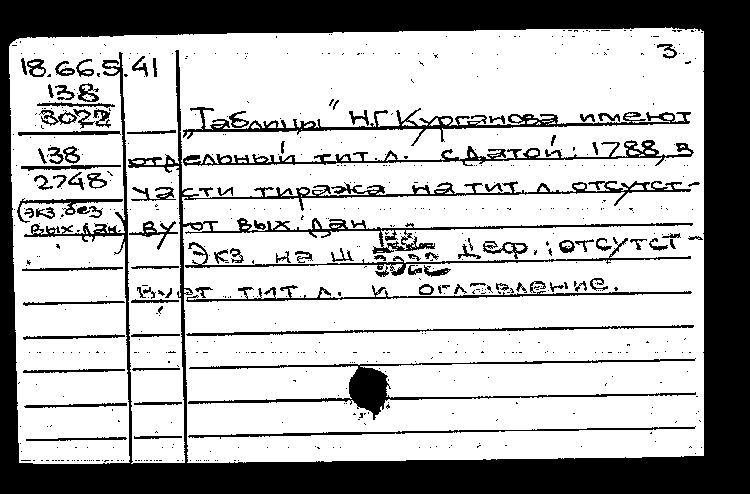 3
18.66.5.41
138
3022
„Таблицы" Н.Г. Курганова имеют
138
отдельный тит. л. с датой: 1788, в
2748
части тиража на тит. л. отсутст-
(экз. без
вых. дан.)
вуют вых. дан.
Экз. на ш. 138 деф.: отсутст-
3022
вует тит. л. и оглавление.